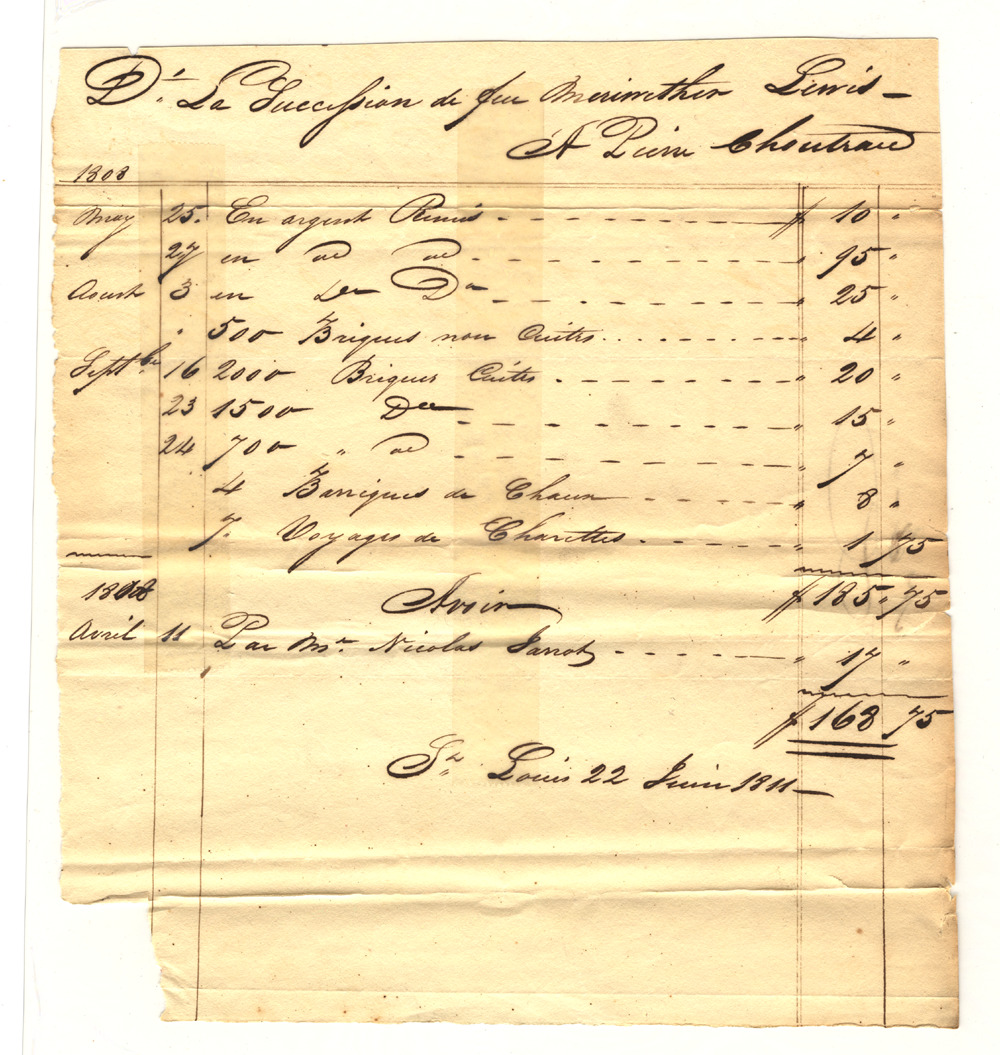 Dt. La Succession de feu Meriwether Lewis —
A Pierre Chouteau
1808
May 25. En argent Remis - - - $ 10 "
27 en do do - - - " 95 "
Aoust 3 en do Do - - - " 25 "
" 500 Briques non Cuites - - - " 4 "
Septbre 16 2000 Briques Cuites - - - " 20 "
23 1500 Do - - - " 15 "
24 700 " do - - - " 7 "
4 Barriques de Chaux - - - " 8 "
7. Voyages de Charettes - - - " 1 75
$ 185 " 75
Avoir
Avril 11 Par Mr. Nicolas Jarrot - - - " 17 "
$ 168 75
St. Louis 22 Juin 1811 —